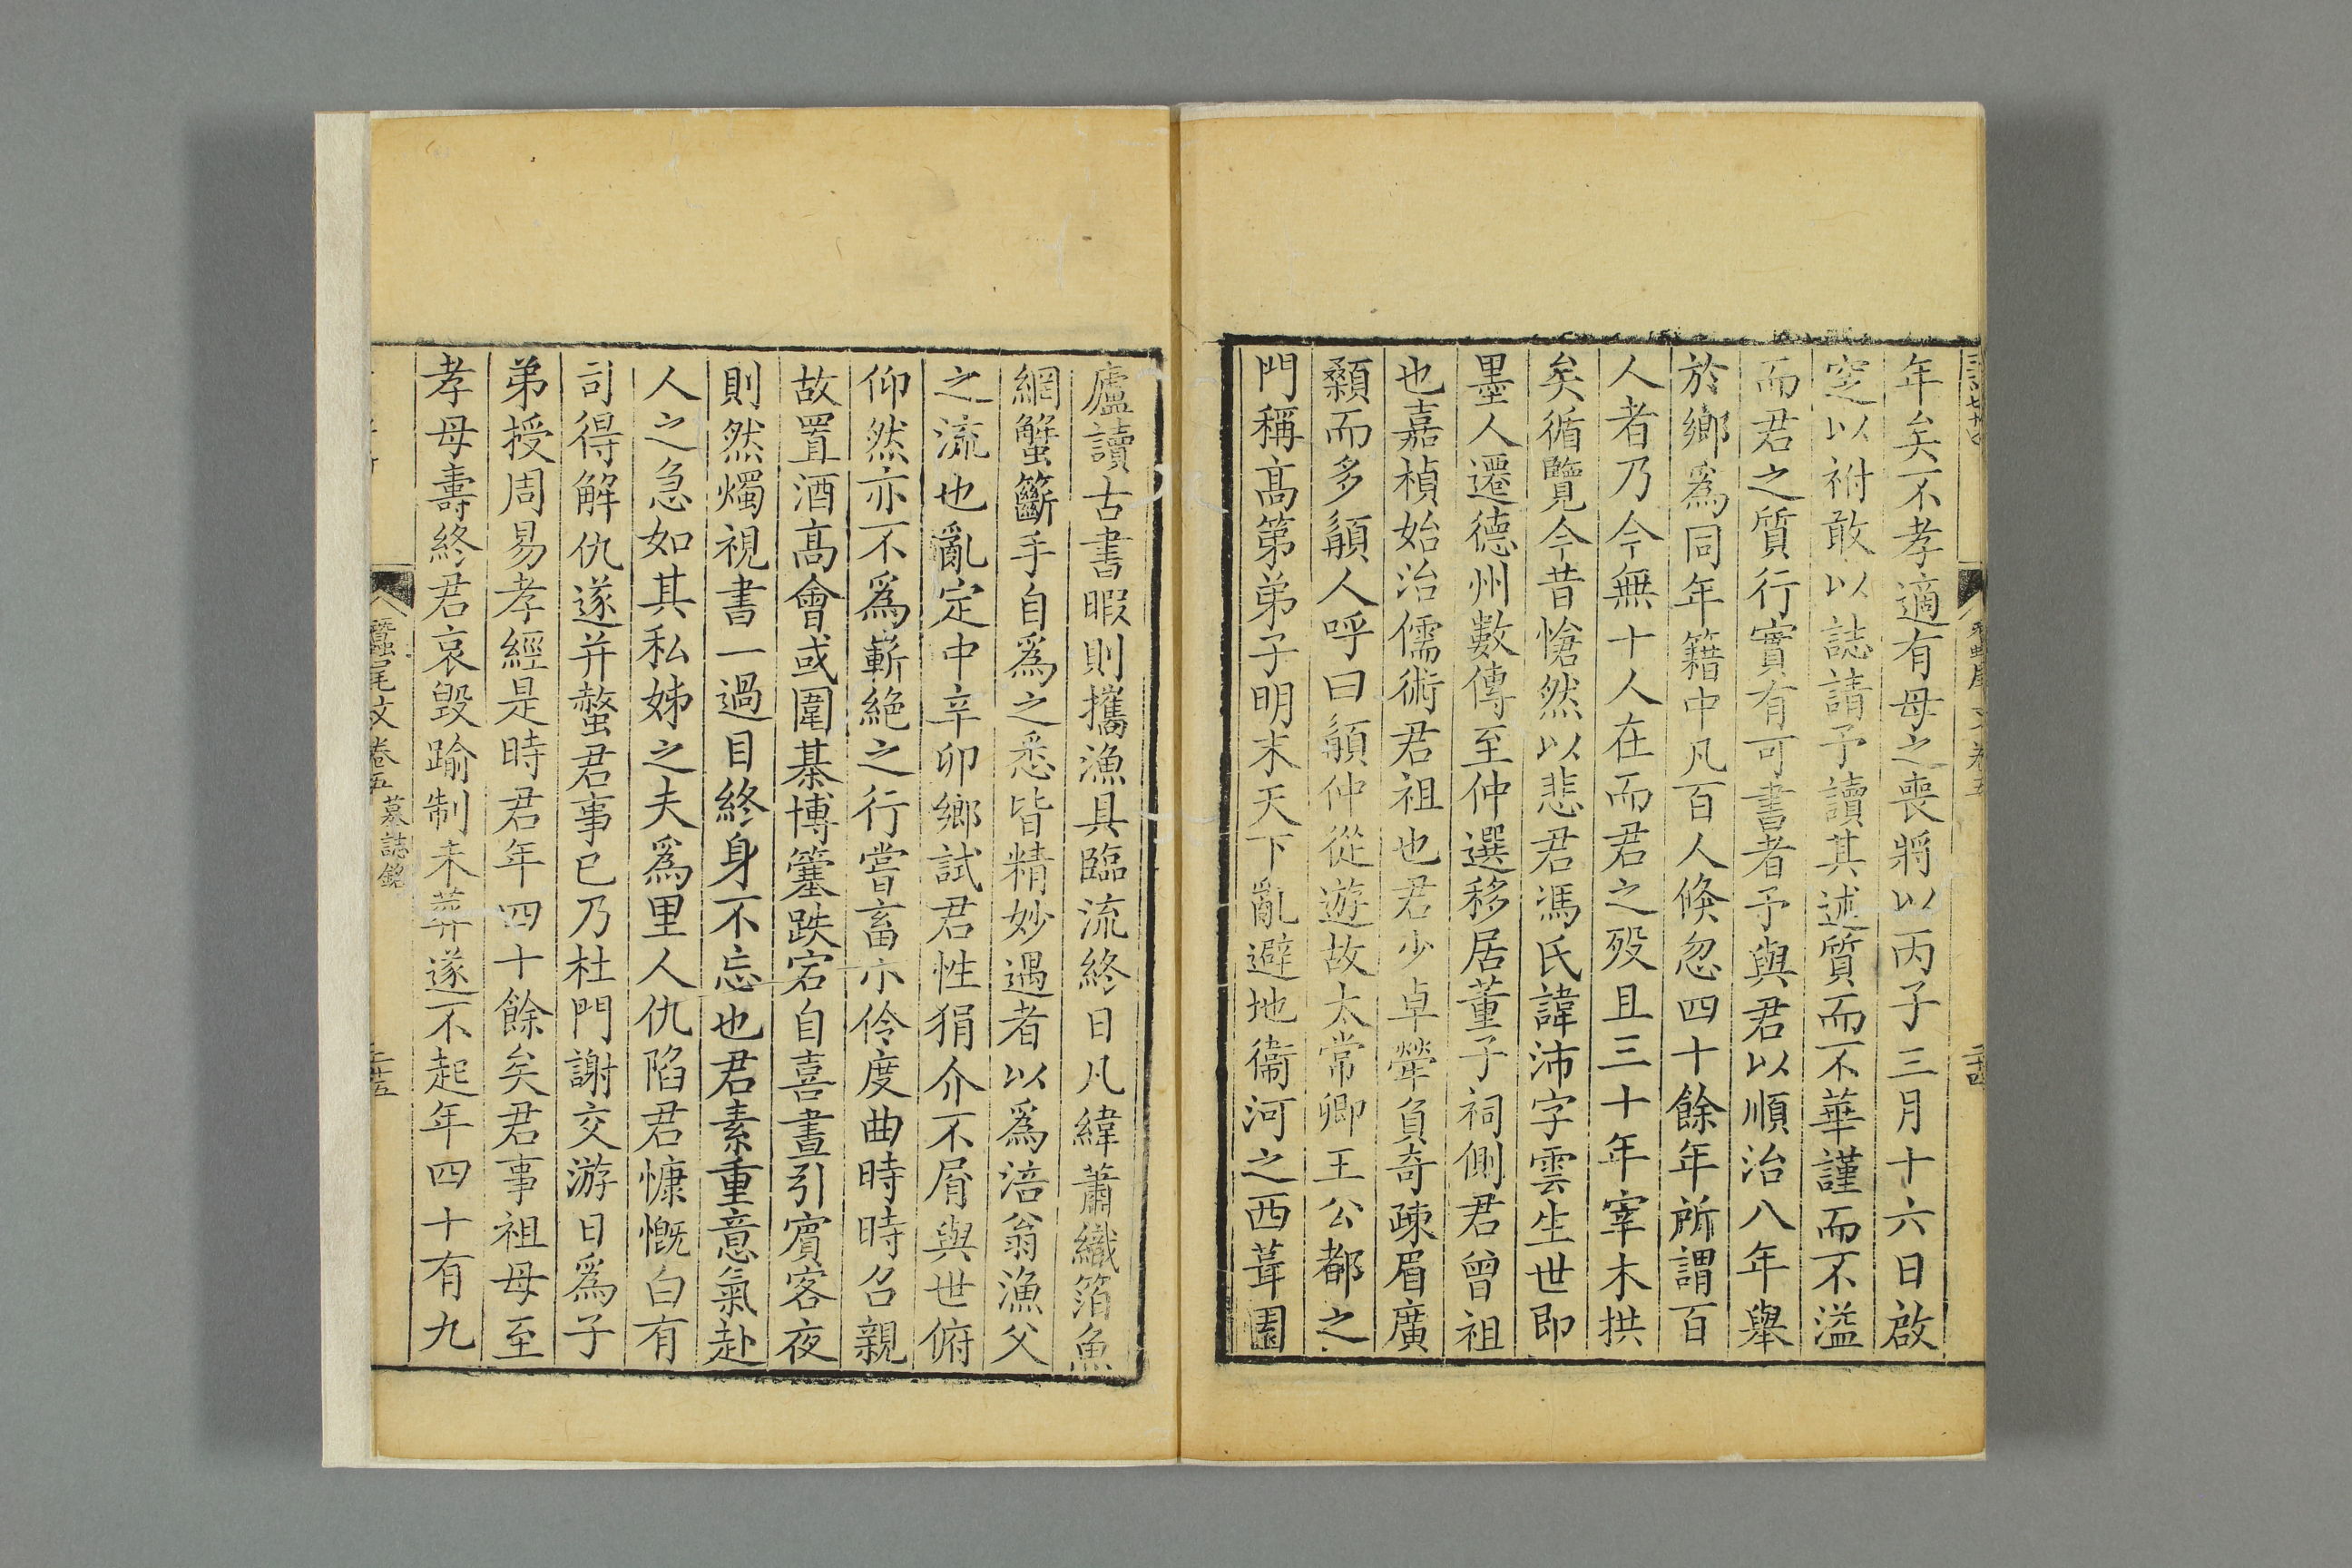 年矣不孝適有母之喪將以丙子三月十六日啟
窆以祔敢以誌請予讀其述質而不華謹而不溢
而君之質行實有可書者予與君以順治八年舉
於鄉爲同年籍中凡百人倐忽四十餘年所謂百
人者乃今無十人在而君之歿且三十年宰木拱
矣循覽今昔愴然以悲君馮氏諱沛字雲生世即
墨人遷德州數傳至仲選移居董子祠側君曾祖
也嘉楨始治儒術君祖也君少卓犖負奇疎眉廣
顙而多鬚人呼曰鬚仲從遊故太常卿王公都之
門稱高第弟子明末天下亂避地衞河之西葺園
廬讀古書暇則攜漁具臨流終日凡緯蕭織箔魚
網蟹籪手自爲之悉皆精妙遇者以爲涪翁漁父
之流也亂定中辛卯鄉試君性狷介不屑與世俯
仰然亦不爲嶄絶之行嘗畜小伶度曲時時召親
故置酒高會或圍棊博簺跌宕自喜晝引賓客夜
則然燭視書一過目終身不忘也君素重意氣赴
人之急如其私姊之夫爲里人仇陷君慷慨白有
司得解仇遂并螫君事已乃杜門謝交游日爲子
弟授周易孝經是時君年四十餘矣君事祖母至
孝母壽終君哀毀踰制未葬遂不起年四十有九
蠶尾文卷五 墓誌銘